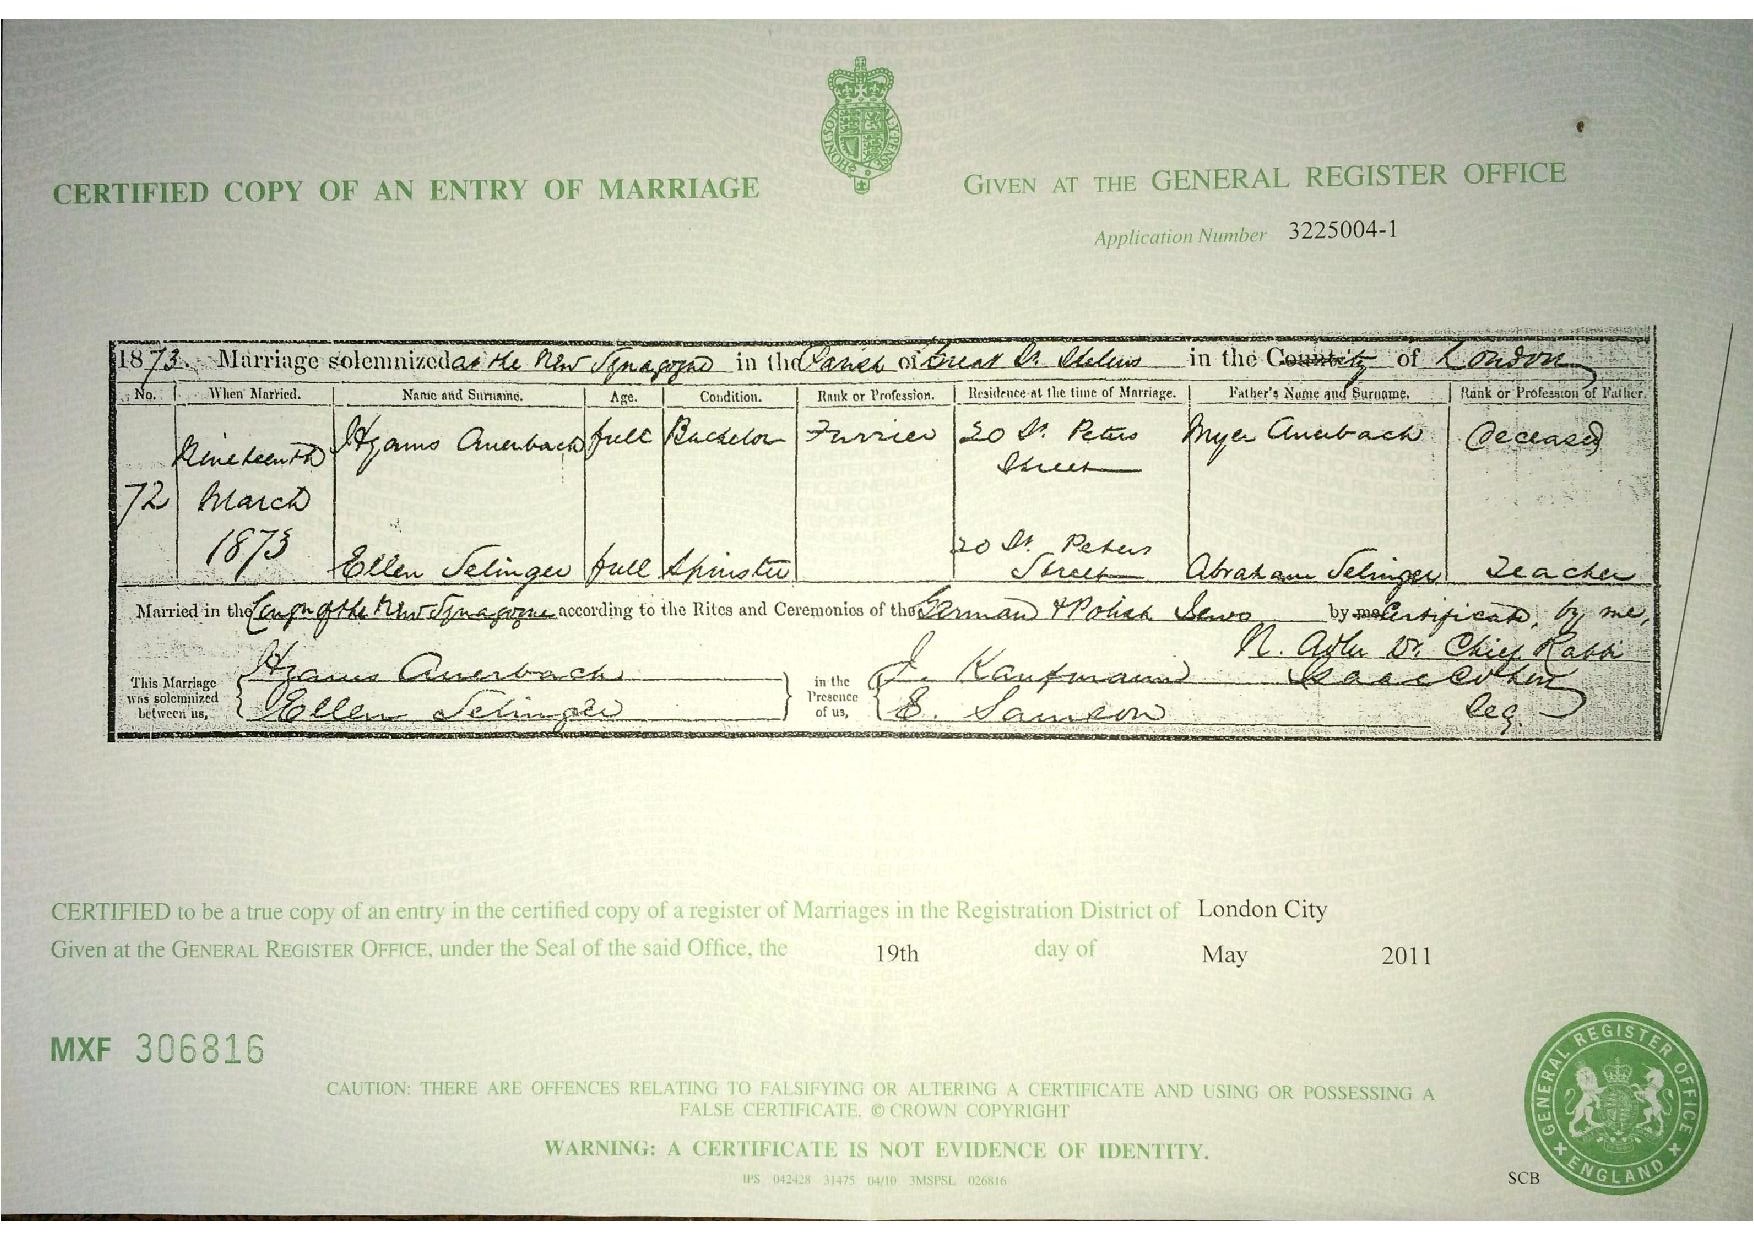 CERTIFIED COPY OF AN ENTRY OF MARRIAGE
GIVEN AT THE GENERAL REGISTER OFFICE
Application Number 3225004-1
1873. Marriage solemnized at the New Synagogue in the Parish of Great St. Helens in the County City of London
No. When Married. Name and Surname. Age. Condition. Rank or Profession. Residence at the time of Marriage. Father's Name and Surname. Rank or Profession of Father.
72 Nineteenth March 1873
Hyams Auerbach full Bachelor Furrier 20 St. Peters Street Myer Auerbach Deceased
Ellen Selinger full Spinster 20 St. Peters Street Abraham Selinger Teacher
Married in the Congn of the New Synagogue according to the Rites and Ceremonies of the German & Polish Jews by me Certificate, by me,
N. Adler Dr. Chief Rabbi
This Marriage was solemnized between us,
Hyams Auerbach
Ellen Selinger
in the Presence of us,
J. Kaufmann
E. Samson
Isaac Cohen
Sec.
CERTIFIED to be a true copy of an entry in the certified copy of a register of Marriages in the Registration District of London City
Given at the GENERAL REGISTER OFFICE, under the Seal of the said Office, the 19th day of May 2011
MXF 306816
CAUTION: THERE ARE OFFENCES RELATING TO FALSIFYING OR ALTERING A CERTIFICATE AND USING OR POSSESSING A
FALSE CERTIFICATE. © CROWN COPYRIGHT
WARNING: A CERTIFICATE IS NOT EVIDENCE OF IDENTITY.
IPS 042428 31475 04/10 3MSPSL 026816
SCB
GENERAL REGISTER OFFICE
ENGLAND